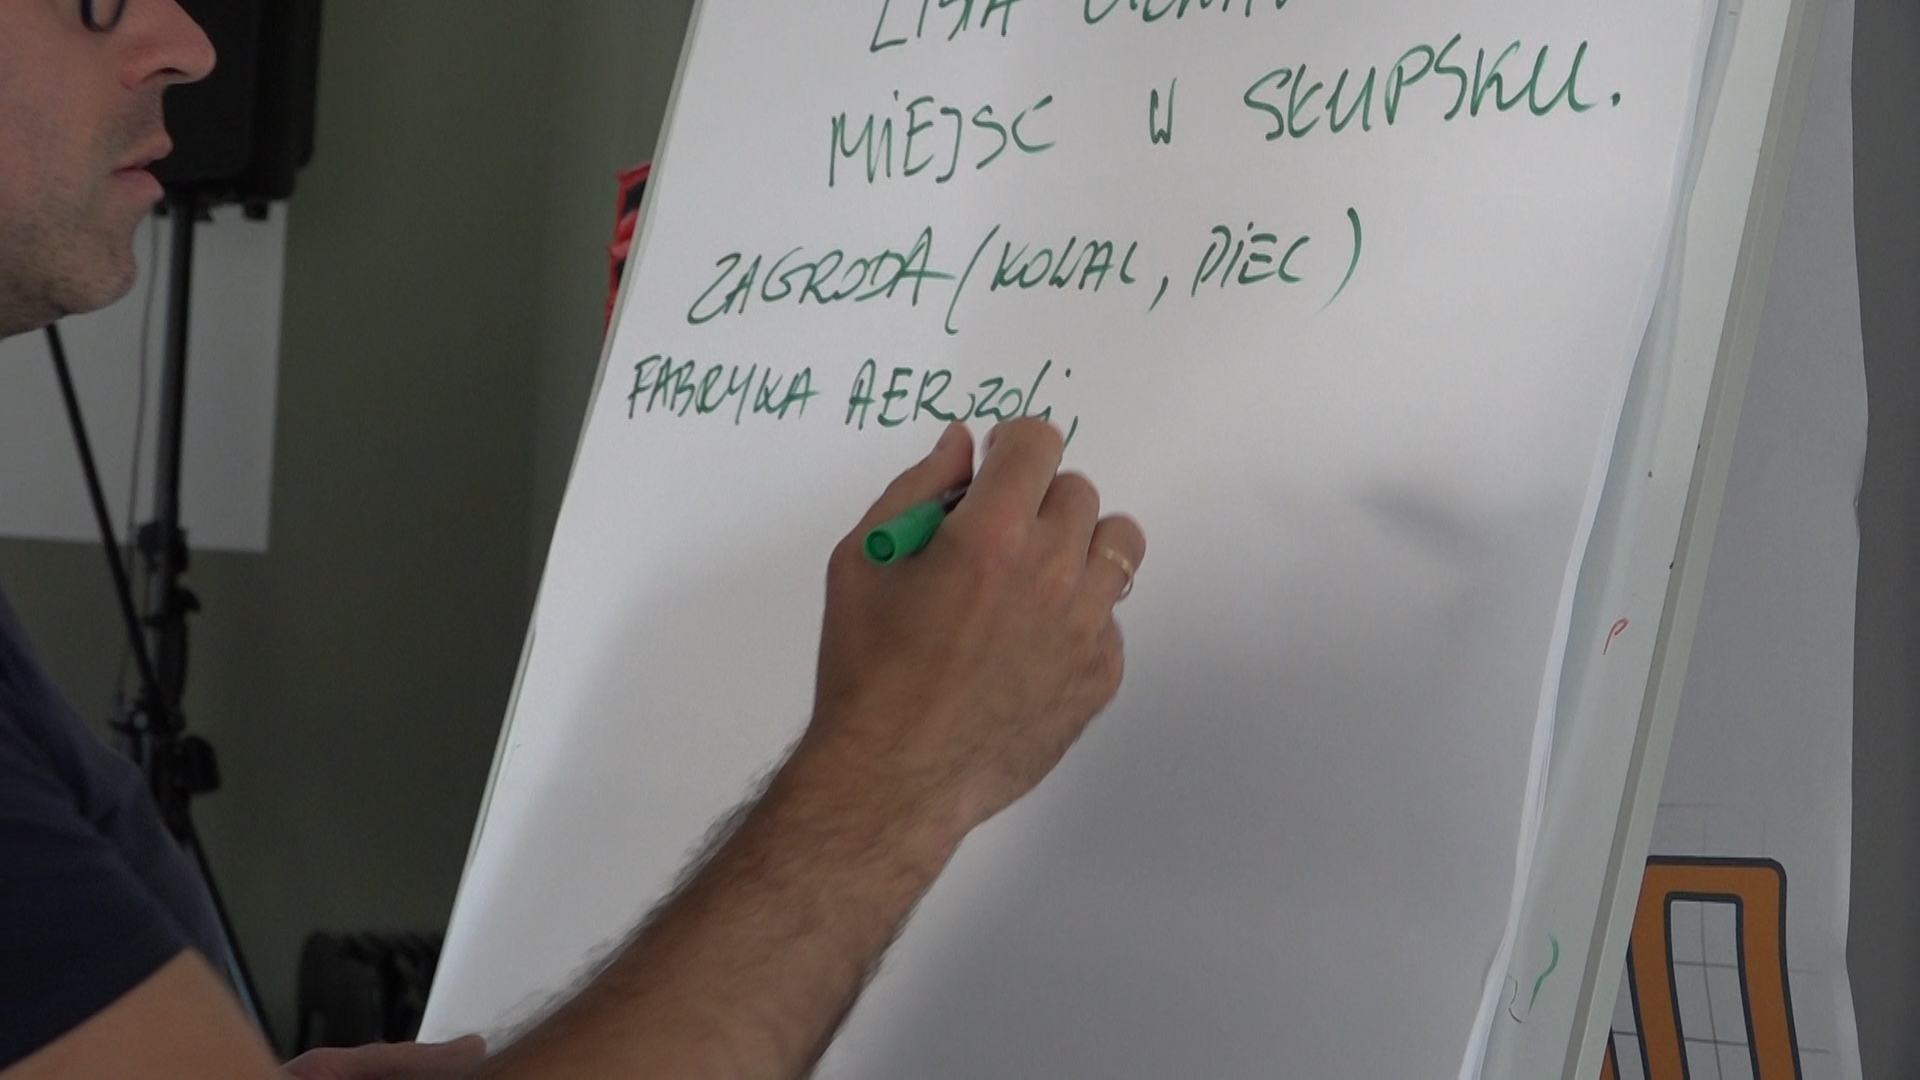 LISTA
MIEJSC W SŁUPSKU.
ZAGRODA (KOWAL, PIEC)
FABRYKA AEROZOLI,
P